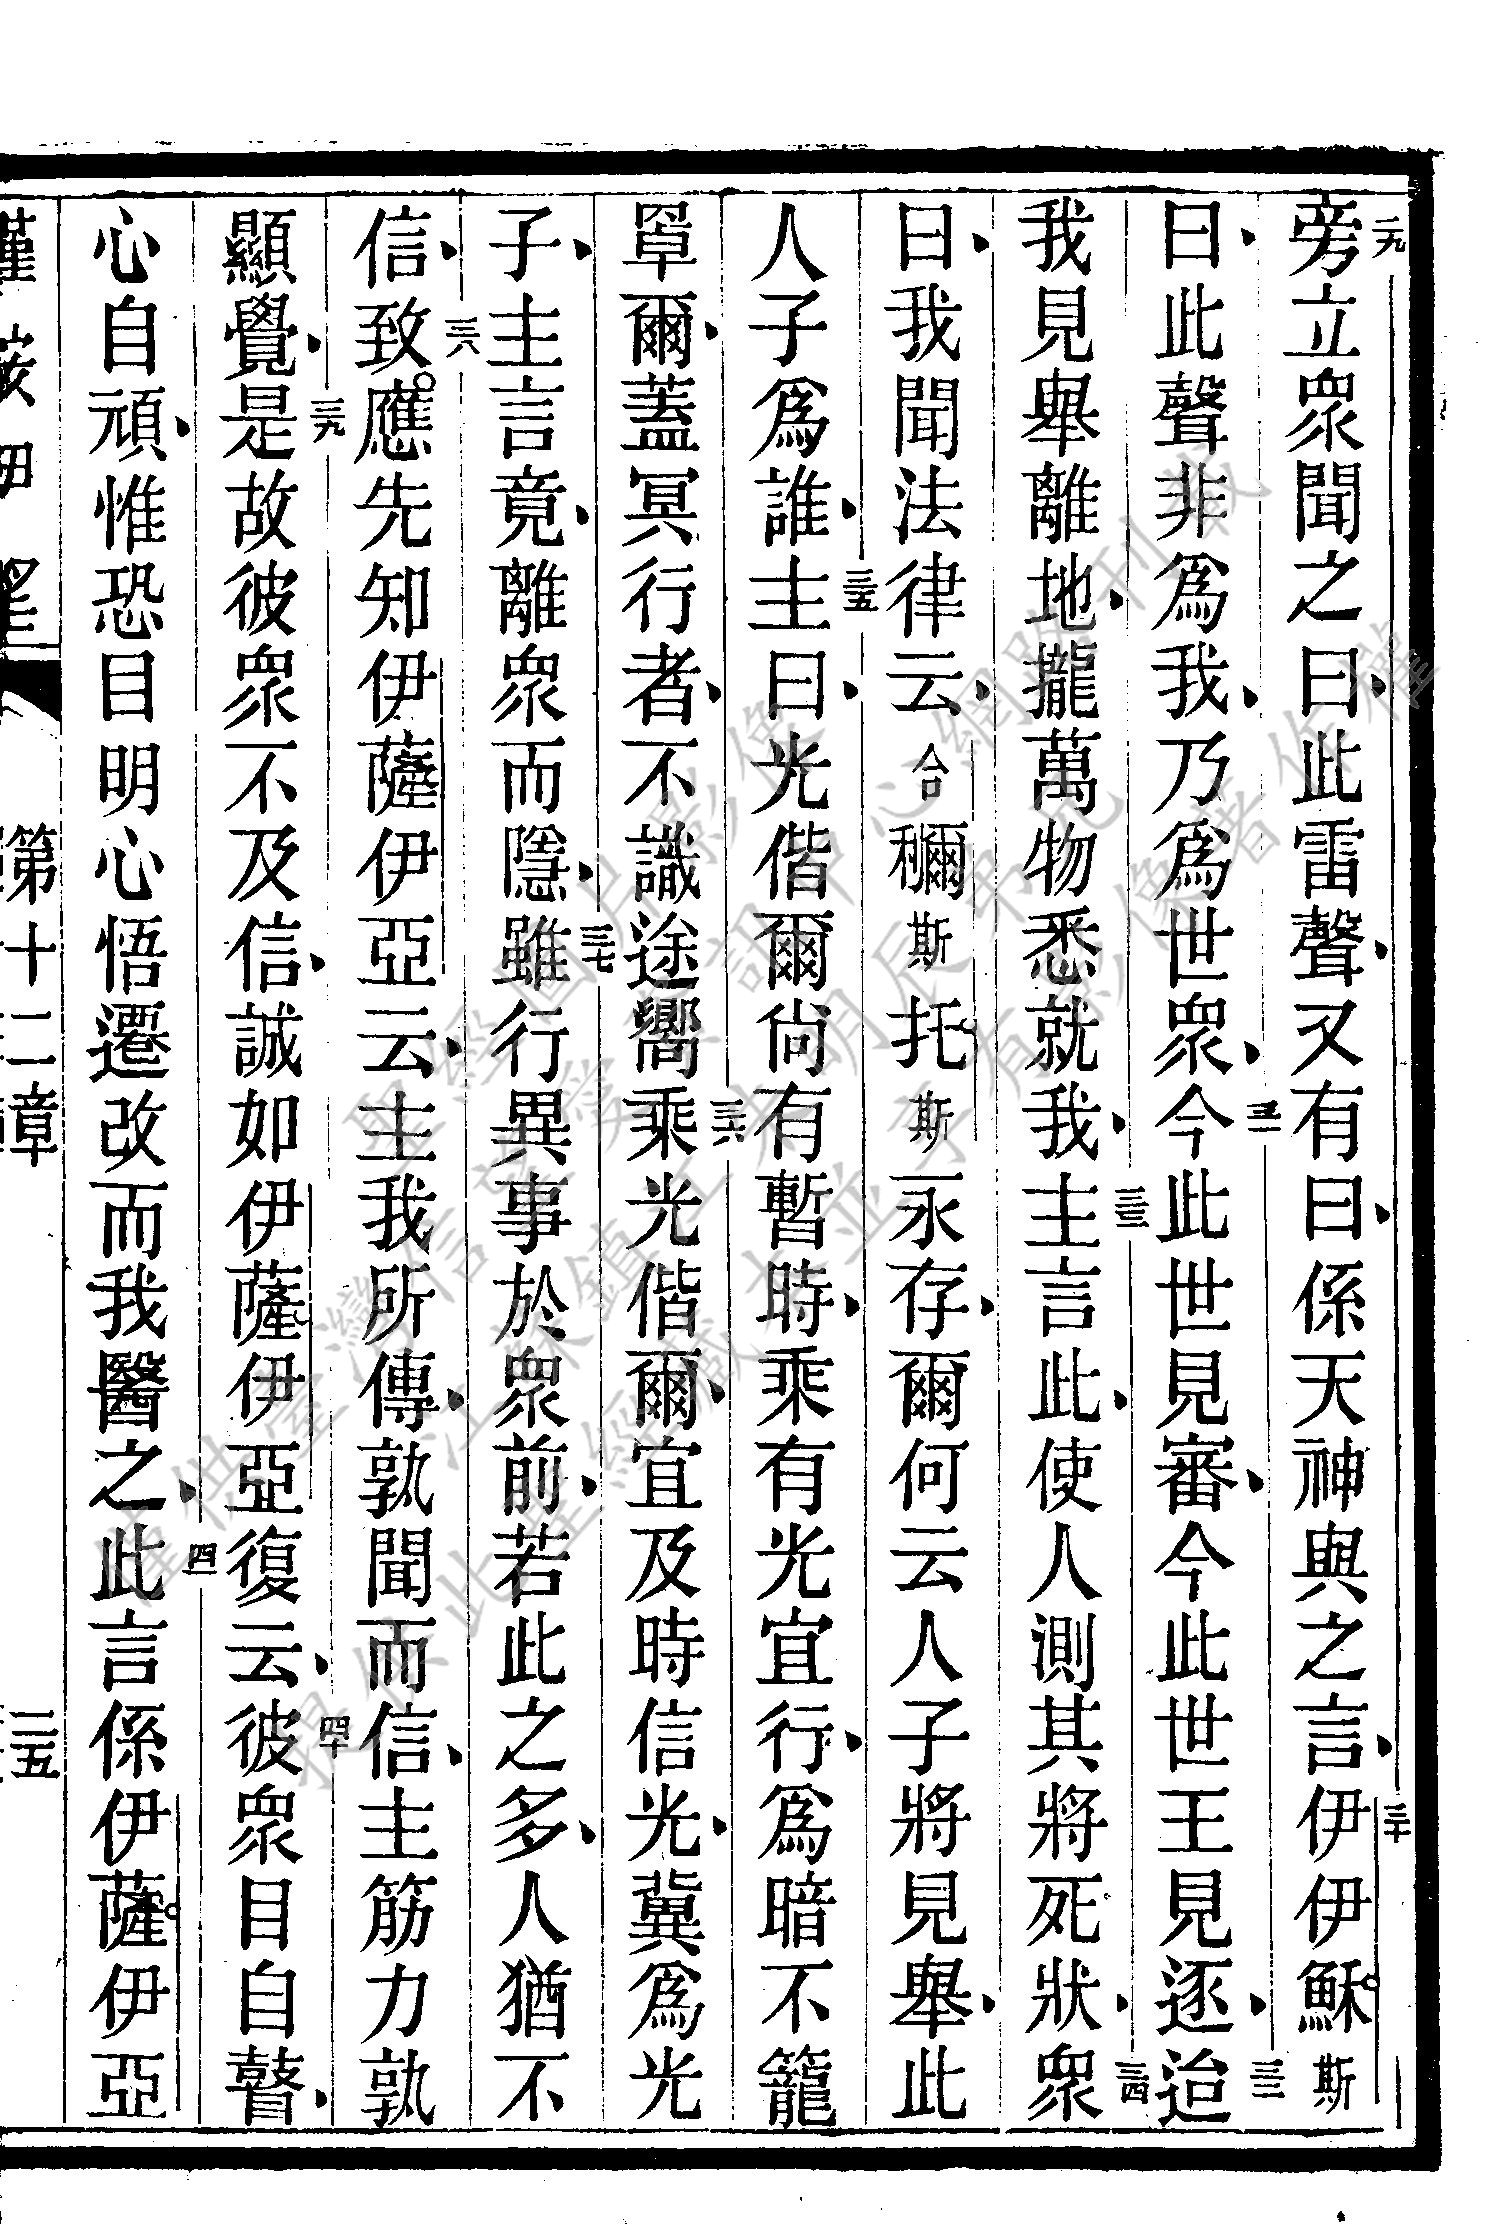 二九旁立眾聞之曰此雷聲又有曰係天神與之言三十伊伊穌斯
曰此聲非爲我乃爲世眾三一今此世見審今此世王見逐三二迨
我見舉離地攏萬物悉就我三三主言此使人測其將死狀三四眾
曰我聞法律云合穪斯托斯永存爾何云人子將見舉此
人子爲誰三五主曰光偕爾尙有暫時乘有光宜行爲暗不籠
罩爾蓋冥行者不識途嚮三六乘光偕爾宜及時信光冀爲光
子主言竟離眾而隱三七雖行異事於眾前若此之多人猶不
信三八致應先知伊薩伊亞云主我所傳孰聞而信主筋力孰
顯覺三九是故彼眾不及信誠如伊薩伊亞復云四十彼眾目自瞽
心自頑惟恐目明心悟遷改而我醫之四一此言係伊薩伊亞
第十二章
二五